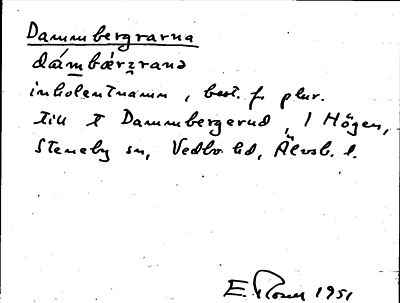 Dammbergrarna
dámbærzrana
inbolentnamn, best. f. plur.
till t Dammbergerud, i Högen,
Steneby sn, Vedbo hd, Älvsb. l.
E. Rosen 1951